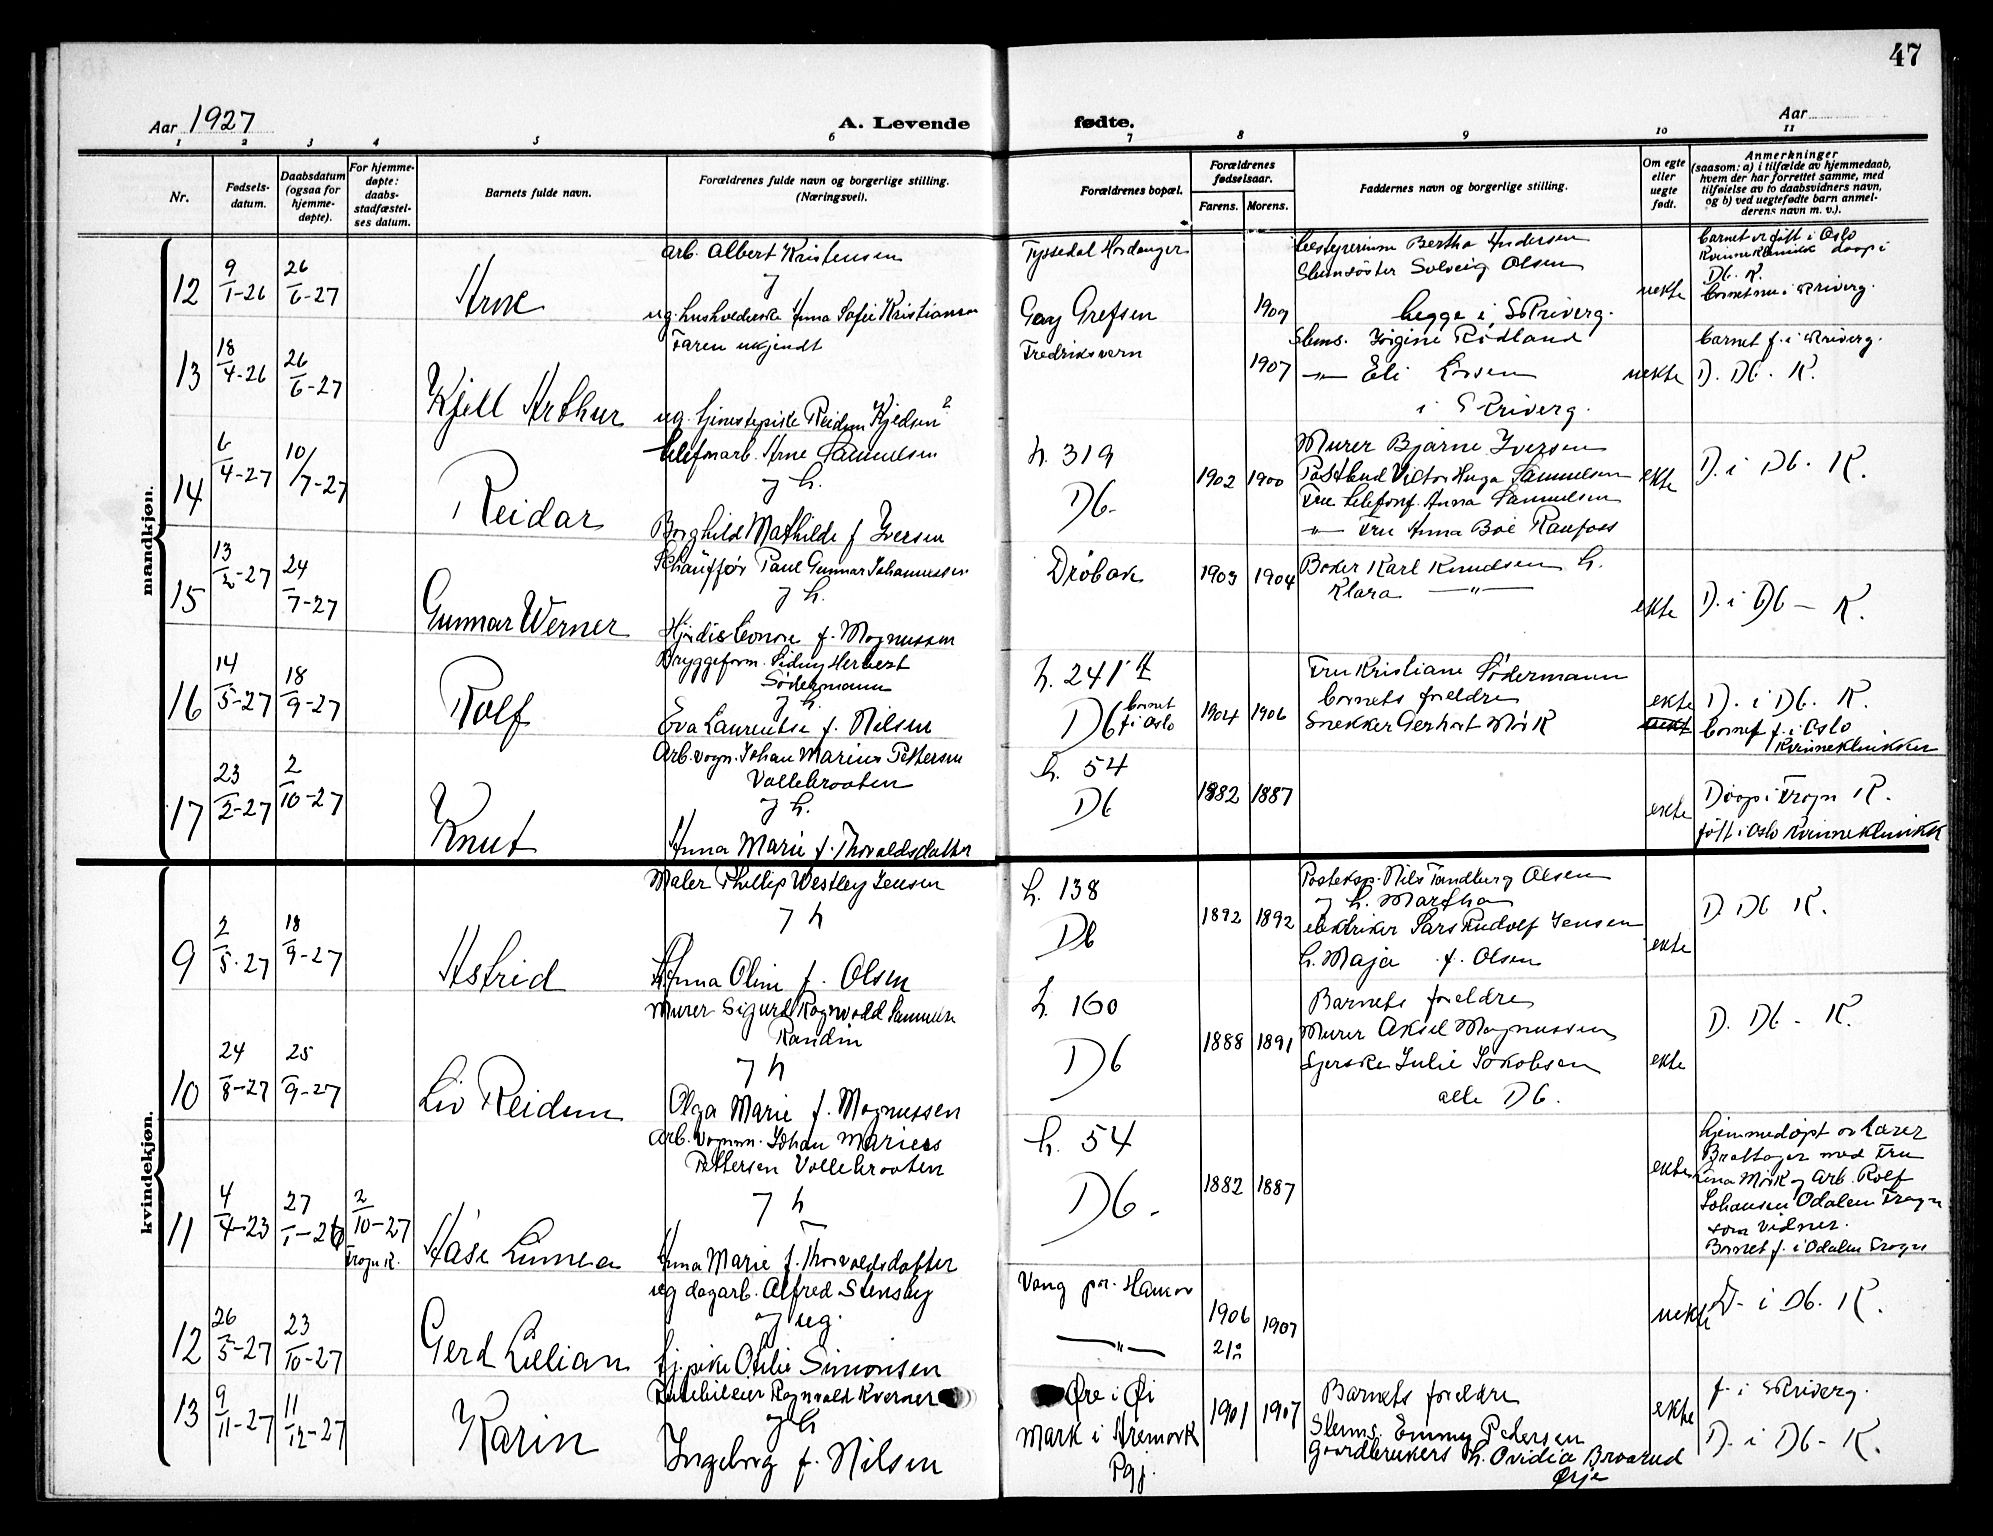 47
Aar 1927
A. Levende
fødte.
Aar
1 2 3 4 5 6 7 8 9 10 11
Nr.
Fødsels-
datum.
Daabsdatum
(ogsaa for
hjemme-
døpte).
For hjemme-
døpte:
daabs-
stadfæstel-
ses datum.
Barnets fulde navn.
Forældrenes fulde navn og borgerlige stilling.
(Næringsvei).
Forældrenes bopæl.
Forældrenes
fødselsaar.
Farens. Morens.
Faddernes navn og borgerlige stilling.
Om egte
eller
uegte
født.
Anmerkninger
(saasom: a) i tilfælde av hjemmedaab,
hvem der har forrettet samme, med
tilføielse av to daabsvidners navn,
og b) ved uegtefødte barn anmel-
derens navn m. v.).
mandkjøn.
12
9/1-26
26/6-27
Arne
arb. Albert Kristensen
og
ug. husholderske Anna Sofie Kristiansen
Tyssedal Hardanger
Grefsen
1909
Bestyrerinne Bertha Andersen
Slumsöster Solveig Olsen
begge i S Kriverg.
uekte
barnet er født i Oslo
Kvinneklinikk daap i
Db. K.
barnet nu i Skriverg.
13
18/4-26
26/6-27
Kjell Arthur
Faren ukjendt
ug. tjenestepike Reidun Kjeldsen
Fredriksvern
1907
Slums. Jørgine Rødland
-"- Eli Larsen
i S Kriverg.
uekte
barnet f. i Skriverg.
D. Db. K.
14
6/4-27
10/7-27
Reidar
telefonarb. Arne Samuelsen
og h.
Borghild Mathilde f Iversen
h. 319
Db.
1902 1900
Murer Bjarne Iversen
Postbud Victor Hugo Samuelsen
Fru telefonf. Anna Samuelsen
-"- Fru Anna Boe Raufoss
ekte
D. i Db. K.
15
13/2-27
24/7-27
Gunnar Werner
Schauffør Paul Gunnar Johannessen
og h.
Hjørdis Leonore f. Magnussen
Drøbak
1903 1904
Baker Karl Knudsen h.
Klara -"-
ekte
D. i Db - K.
16
14/5-27
18/9-27
Rolf
Bryggeform. Sidney Herbert
Södermann
og h.
Eva Laurentse f. Nilsen
h. 241
Db barnet
f i Oslo
1904 1906
Fru Kristiane Södermann
barnets foreldre
Snekker Gerhart Mörk
ekte
uekt
D. i Db. K.
barnet f. i Oslo
Kvinneklinikken
17
23/2-27
2/10-27
Knut
Arb. vogn. Johan Marius Pettersen
Vollebraaten
og h.
Anna Marie f. Thorvaldsdatter
h. 54
Db
1882 1887
ekte
Daap i Frogn K.
født i Oslo Kvinneklinikk
kvindekjøn.
9
2/5-27
18/9-27
Astrid
Maler Phillip Westley Jensen
og h
Anna Oline f. Olsen
h. 138
Db
1892 1892
Posteksp. Nils Tandberg Olsen
og h. Martha
elektriker Lars Rudolf Jensen
h. Maja f. Olsen
ekte
D. Db K.
10
24/8-27
25/9-27
Liv Reidun
Murer Sigurd Ragnvald Samuelsen
Randin
og h
Olga Marie f. Magnussen
h. 160
Db
1888 1891
Barnets foreldre
Murer Aksel Magnussen
Syerske Julie Jakobsen
alle Db.
ekte
D. Db - K.
11
4/4-23
27/1-26
2/10-27
Frogn K.
Aase Linnea
Arb. vognm. Johan Marius
Pettersen Vollebraaten
og h
Anna Marie f. Thorvaldsdatter
h. 54
Db.
1882 1887
ekte
hjemmedøpt av lærer
Brattager med Fru
Lina Mörk og Arb. Rolf
Johansen Odalen Frogn
som vidner.
Barnet f. i Odalen Frogn
12
26/5-27
23/10-27
Gerd Lillian
ug dagarb. Alfred Stensby
og ug.
tj. pike Otilie Simonsen
Vang pr. Hamar
-"-
1906 1907
uekte
D. i Db. K.
13
9/11-27
11/12-27
Karin
Rutebileier Ragnvald Kverner
og h
Ingeborg f. Nilsen
Øre i Øi
mark i Aremark
Pgj.
1901 1907
Barnets foreldre
Slums. Emmy Pedersen
Gaardbrukers h. Ovidia Braarud
Ørje
ekte
f. i Skriverg.
D. i Db - K.